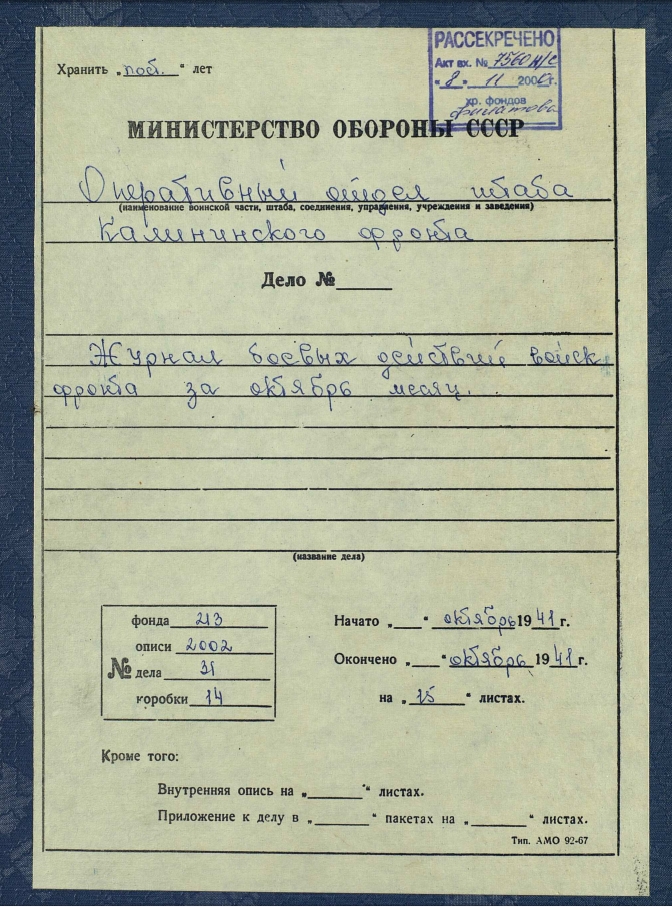 РАССЕКРЕЧЕНО
Акт вх. № 7560 н/с
"8" 11 2000г.
хр. фондов
Филатова
Хранить „пост.“ лет
МИНИСТЕРСТВО ОБОРОНЫ СССР
Оперативный отдел штаба
(наименование воинской части, штаба, соединения, управления, учреждения и заведения)
Калининского фронта
Дело №
Журнал боевых действий войск
фронта за октябрь месяц.
(название дела)
фонда 213
описи 2002
№ дела 31
коробки 14
Начато „ “ октябрь 1941 г.
Окончено „ “ октябрь 1941 г.
на „15“ листах.
Кроме того:
Внутренняя опись на „ “ листах.
Приложение к делу в „ “ пакетах на „ “ листах.
Тип. АМО 92-67